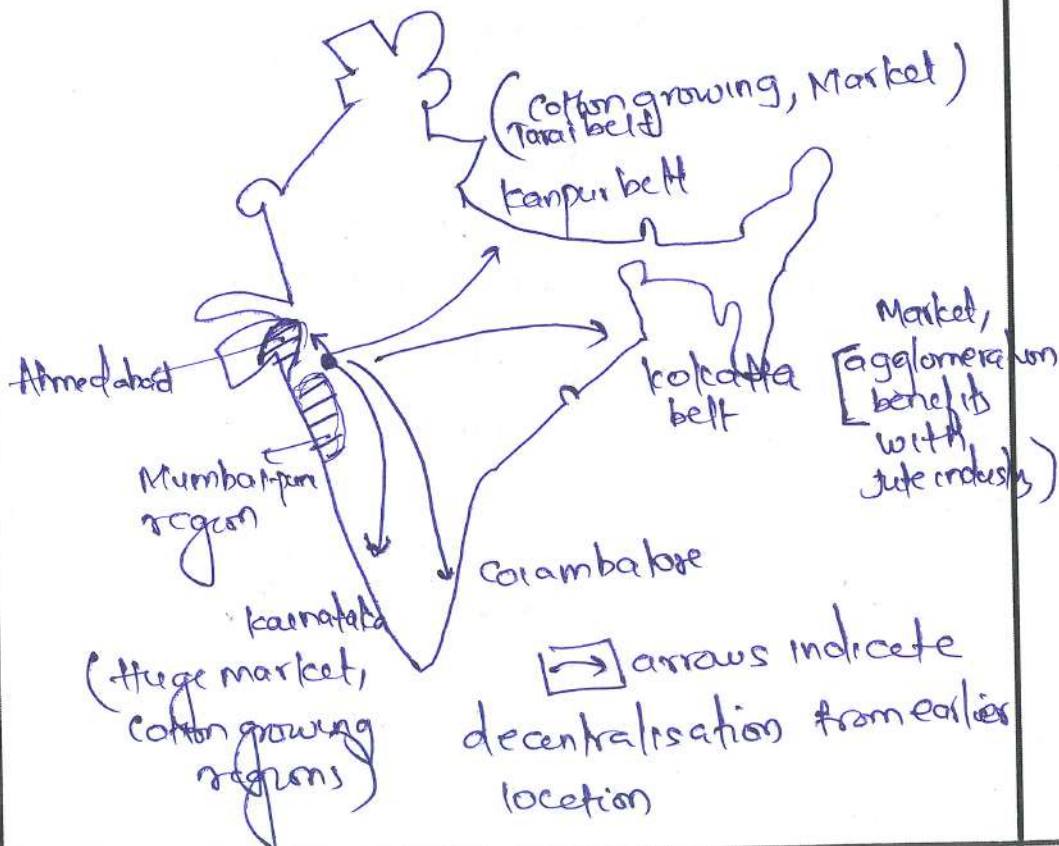 (Cotton growing, Market)
Tarai belt
Kanpur belt
Ahmedabad
Mumbai-pune
region
Kolcatta
belt
Market,
[agglomeration
benefits
with
Jute industry)
Coiambatore
Karnataka
(Huge market,
Cotton growing
regions)
arrows indicate
decentralisation from earlier
location